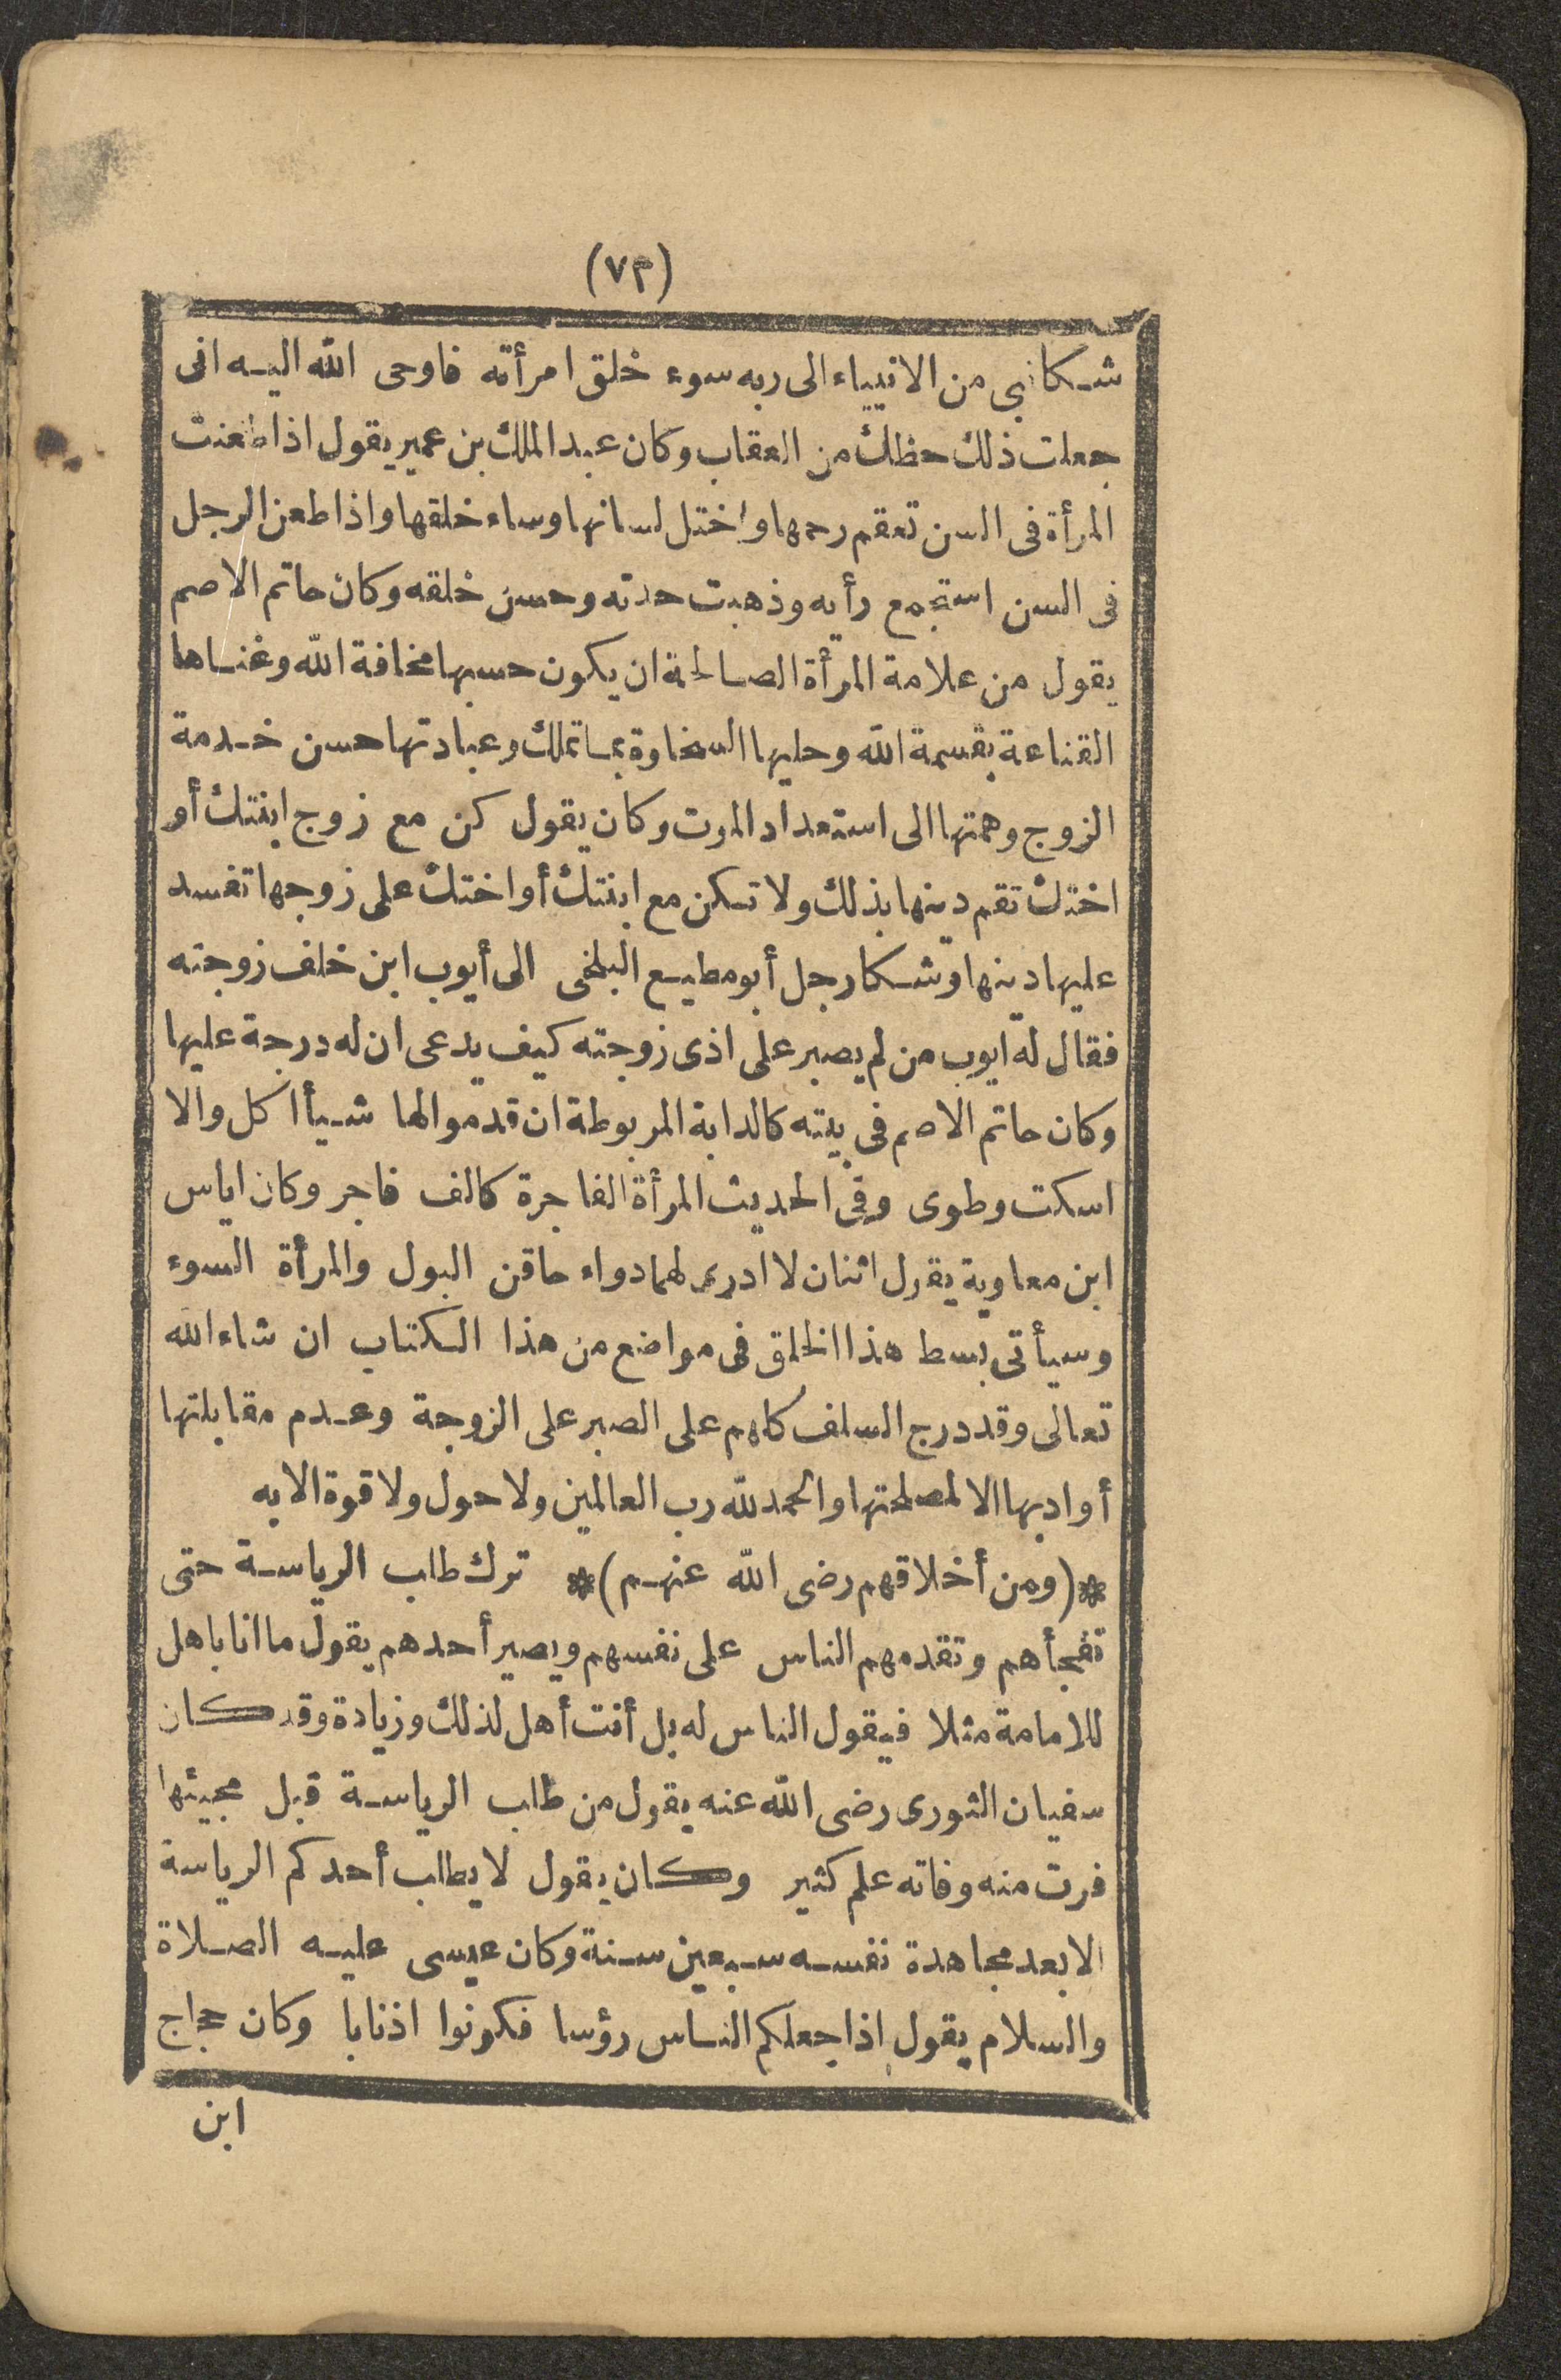 (٧٣)
شكا نبي من الانبياء الى ربه سوء خلق امرأته فاوحى الله اليه انى
جعلت ذلك حظك من العقاب وكان عبد الملك بن عمير يقول اذا طعنت
المرأة فى السن تعقم رحمها واختل لسانها وساء خلقها واذا طعن الرجل
فى السن استجمع رأيه وذهبت حدته وحسن خلقه وكان حاتم الاصم
يقول من علامة المرأة الصالحة ان يكون حسبها مخافة الله وغناها
القناعة بقسمة الله وحليها السخاوة بما تملك وعبادتها حسن خدمة
الزوج وهمتها الى استعداد الموت وكان يقول كن مع زوج ابنتك أو
اختك تقم دينها بذلك ولا تكن مع ابنتك أو اختك على زوجها تفسد
عليها دينها وشكا رجل أبو مطيع البلخى الى أيوب ابن خلف زوجته
فقال له ايوب من لم يصبر على اذى زوجته كيف يدعى ان له درجة عليها
وكان حاتم الاصم فى بيته كالدابة المربوطة ان قدموا لها شيأ اكل والا
اسكت وطوى وفى الحديث المرأة الفاجرة كالف فاجر وكان اياس
ابن معاوية يقول اثنان لا ادرى لهما دواء حاقن البول والمرأة السوء
وسيأتى بسط هذا الخلق فى مواضع من هذا الكتاب ان شاء الله
تعالى وقد درج السلف كلهم على الصبر على الزوجة وعدم مقابلتها
أو ادبها الا لمصلحتها والحمد لله رب العالمين ولا حول ولا قوة الا به
*(ومن أخلاقهم رضى الله عنهم)* ترك طلب الرياسة حتى
تفجأهم وتقدمهم الناس على نفسهم ويصير أحدهم يقول ما انا باهل
للامامة مثلا فيقول الناس له بل أنت أهل لذلك وزيادة وقد كان
سفيان الثورى رضى الله عنه يقول من طلب الرياسة قبل مجيئها
فرت منه وفاته علم كثير وكان يقول لا يطلب أحدكم الرياسة
الا بعد مجاهدة نفسه سبعين سنة وكان عيسى عليه الصلاة
والسلام يقول اذا جعلكم الناس رؤسا فكونوا اذنابا وكان حجاج
ابن